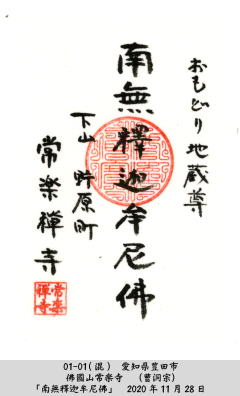 おもどり地蔵尊
南無釋迦牟尼佛
下山 阡原町
常楽禅寺
常楽
禅寺
01-01(混) 愛知県豊田市
佛國山常楽寺 (曹洞宗)
「南無釋迦牟尼佛」 2020年11月28日